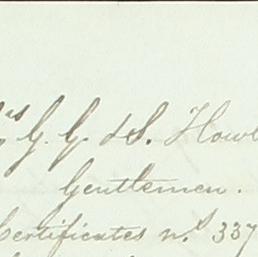 G. G. & S. Howl
Gentlemen.
Certificates n.s 337